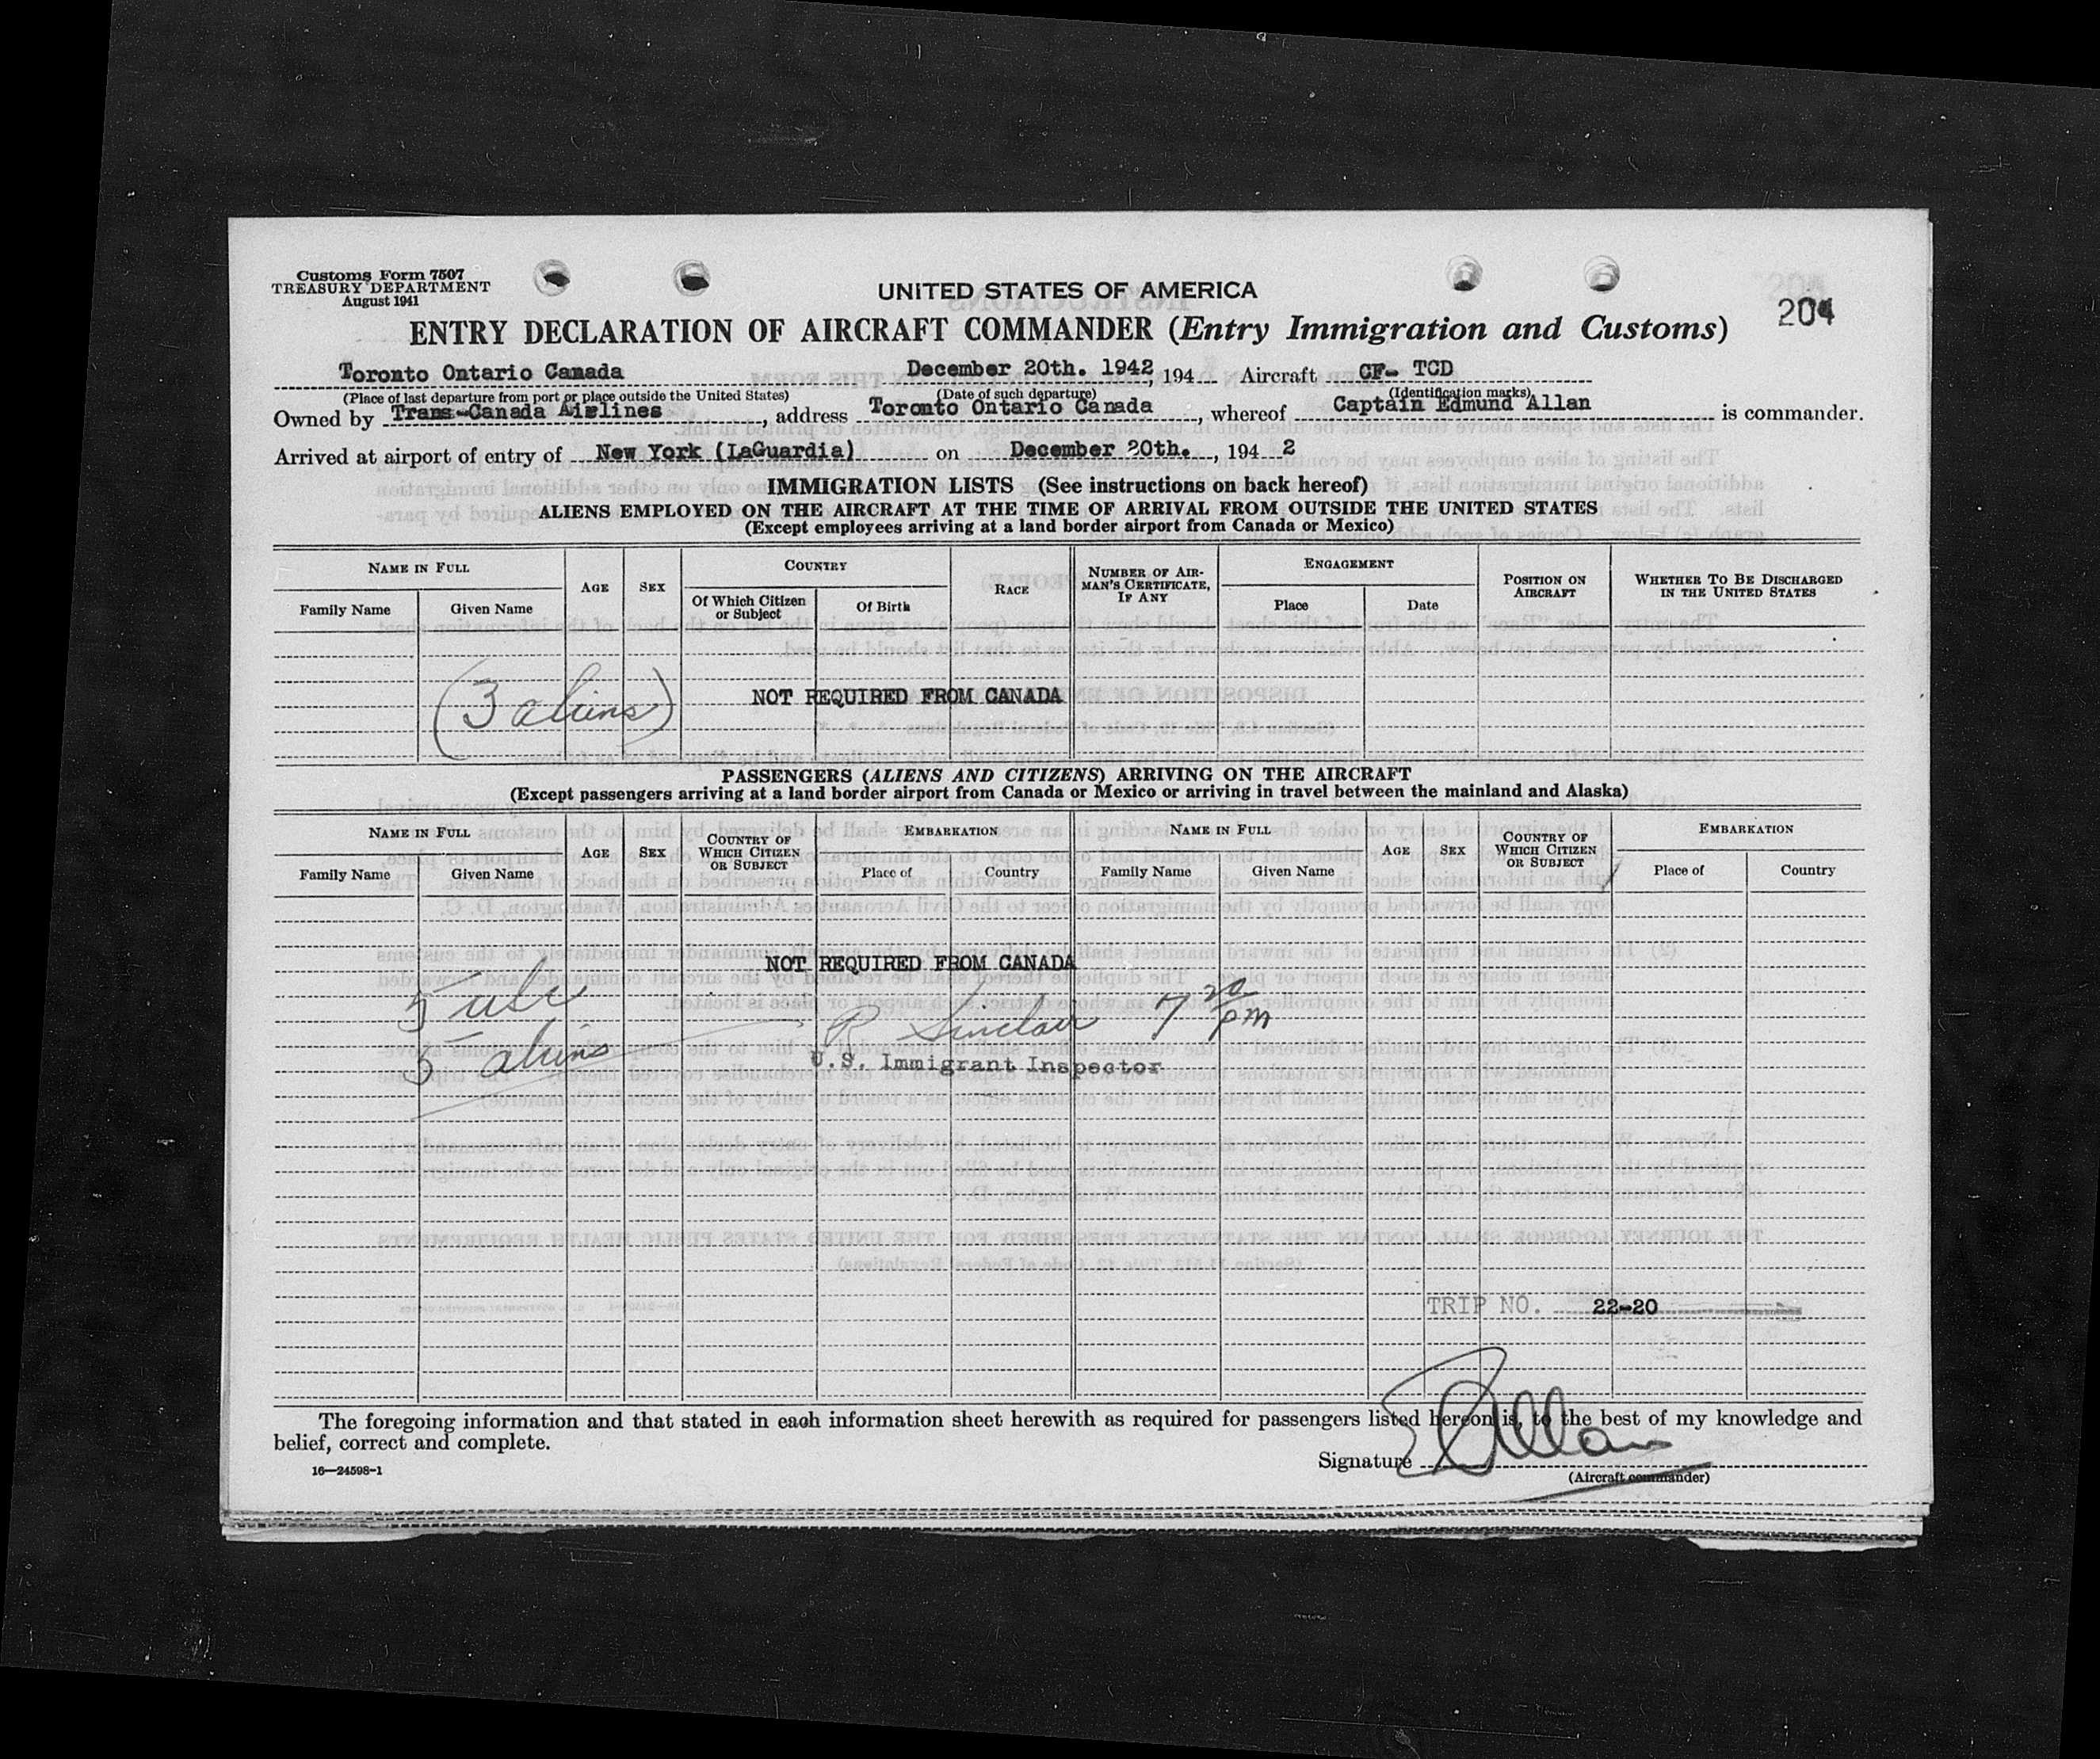 Customs Form 7507
TREASURY DEPARTMENT
August 1941
UNITED STATES OF AMERICA
204
ENTRY DECLARATION OF AIRCRAFT COMMANDER (Entry Immigration and Customs)
Toronto Ontario Canada December 20th. 1942, 194 Aircraft CF- TCD
(Place of last departure from port or place outside the United States) (Date of such departure) (Identification marks)
Owned by Trans-Canada Airlines, address Toronto Ontario Canada, whereof Captain Edmund Allan is commander.
Arrived at airport of entry of New York (LaGuardia) on December 20th., 194 2
IMMIGRATION LISTS (See instructions on back hereof)
ALIENS EMPLOYED ON THE AIRCRAFT AT THE TIME OF ARRIVAL FROM OUTSIDE THE UNITED STATES
(Except employees arriving at a land border airport from Canada or Mexico)
NAME IN FULL
Family Name Given Name
AGE
SEX
COUNTRY
Of Which Citizen or Subject Of Birth
RACE
NUMBER OF AIRMAN'S CERTIFICATE, IF ANY
ENGAGEMENT
Place Date
POSITION ON AIRCRAFT
WHETHER TO BE DISCHARGED IN THE UNITED STATES
(3 aliens) NOT REQUIRED FROM CANADA
PASSENGERS (ALIENS AND CITIZENS) ARRIVING ON THE AIRCRAFT
(Except passengers arriving at a land border airport from Canada or Mexico or arriving in travel between the mainland and Alaska)
NAME IN FULL
Family Name Given Name
AGE
SEX
COUNTRY OF WHICH CITIZEN OR SUBJECT
EMBARKATION
Place of Country
NAME IN FULL
Family Name Given Name
AGE
SEX
COUNTRY OF WHICH CITIZEN OR SUBJECT
EMBARKATION
Place of Country
NOT REQUIRED FROM CANADA
5 usc
5 aliens R Sinclair 7 20 pm
U.S. Immigrant Inspector
TRIP NO. 22-20
The foregoing information and that stated in each information sheet herewith as required for passengers listed hereon is, to the best of my knowledge and
belief, correct and complete.
Signature E Allan
(Aircraft commander)
16—24598-1